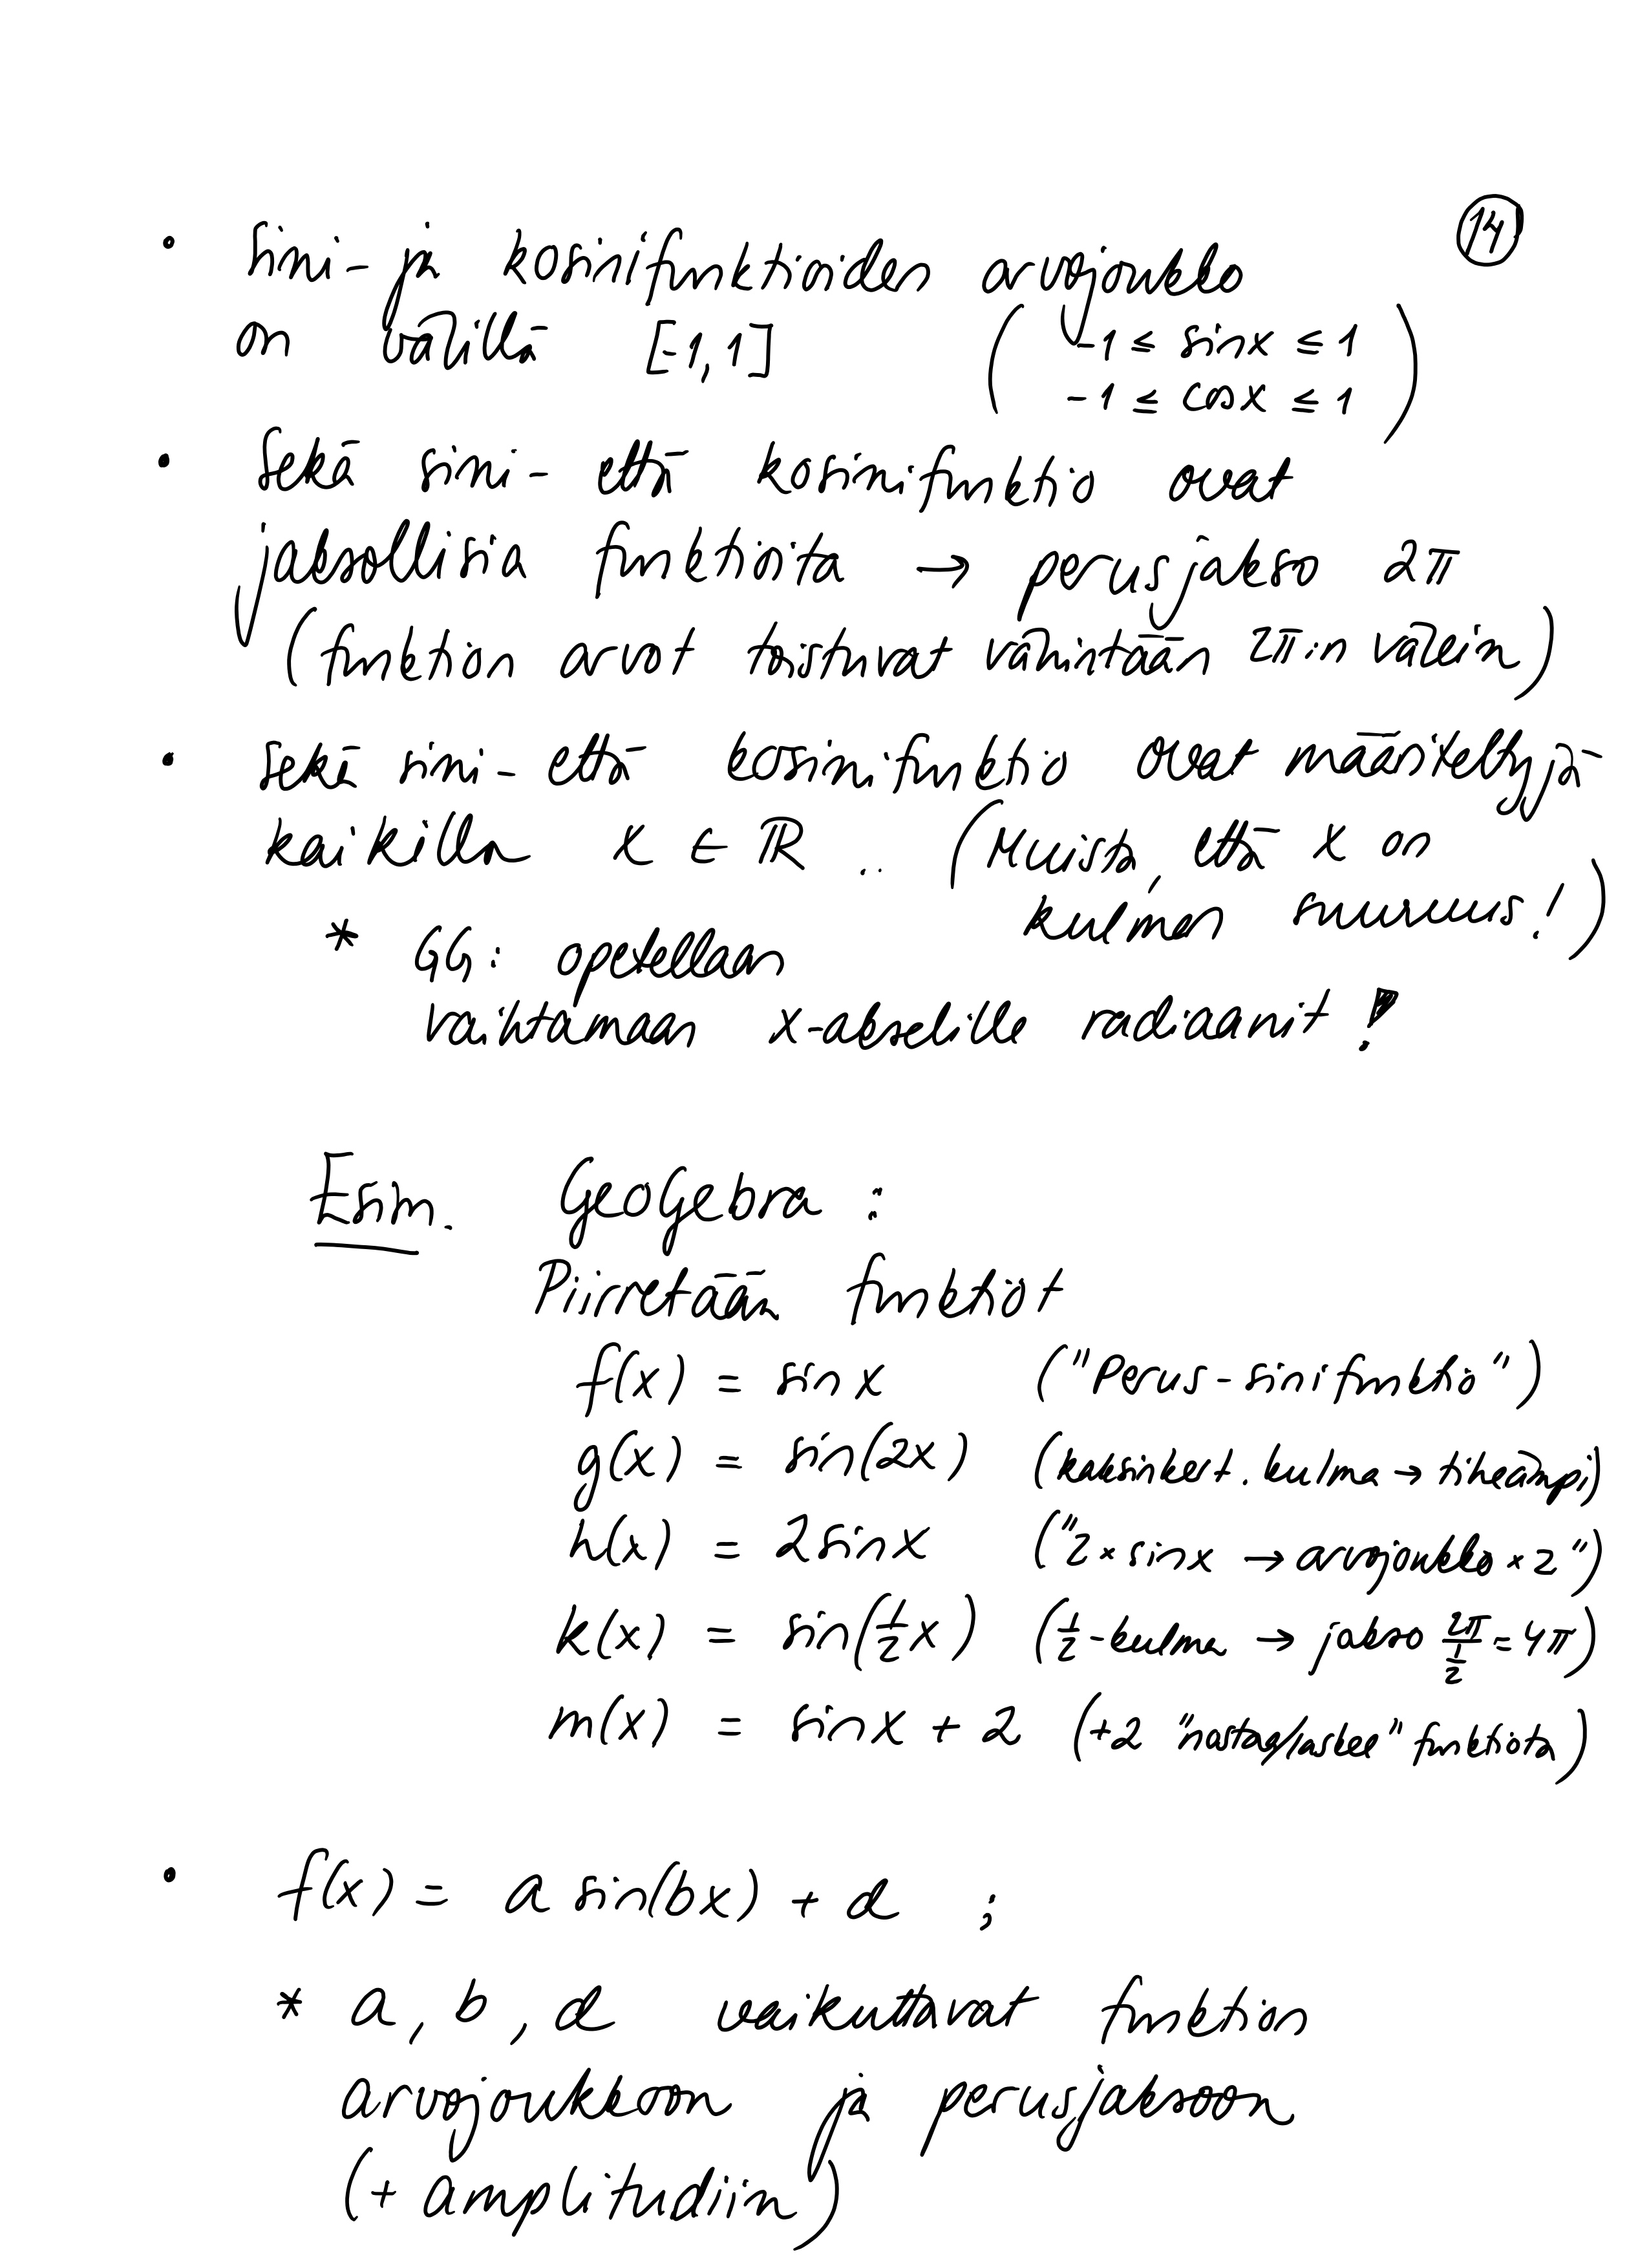 14
• Sini- ja kosinifunktioiden arvojoukko
on välillä [-1,1] ( -1 ≤ sinx ≤ 1
-1 ≤ cosx ≤ 1 )
• Sekä sini- että kosinifunktio ovat
jaksollisia funktioita → perusjakso 2π
(funktion arvot toistuvat vähintään 2π:n välein)
• Sekä sini- että kosinifunktio ovat määriteltyjä
kaikilla x ∈ ℝ .. (Muista, että x on
kulman suuruus!)
* GG: opetellaan
vaihtamaan x-akselille radiaanit !
Esim. GeoGebra :
Piirretään funktiot
f(x) = sin x ("Perus-sinifunktio")
g(x) = sin(2x) (kaksinkert. kulma → tiheämpi)
h(x) = 2 sin x ("2 × sinx → arvojoukko × 2")
k(x) = sin(1/2 x) (1/2-kulma → jakso 2π/(1/2) = 4π)
m(x) = sinx + 2 (+2 "nostaa/laskee" funktiota)
• f(x) = a sin(bx) + d ;
* a, b, d vaikuttavat funktion
arvojoukkoon ja perusjaksoon
(+ amplitudiin)